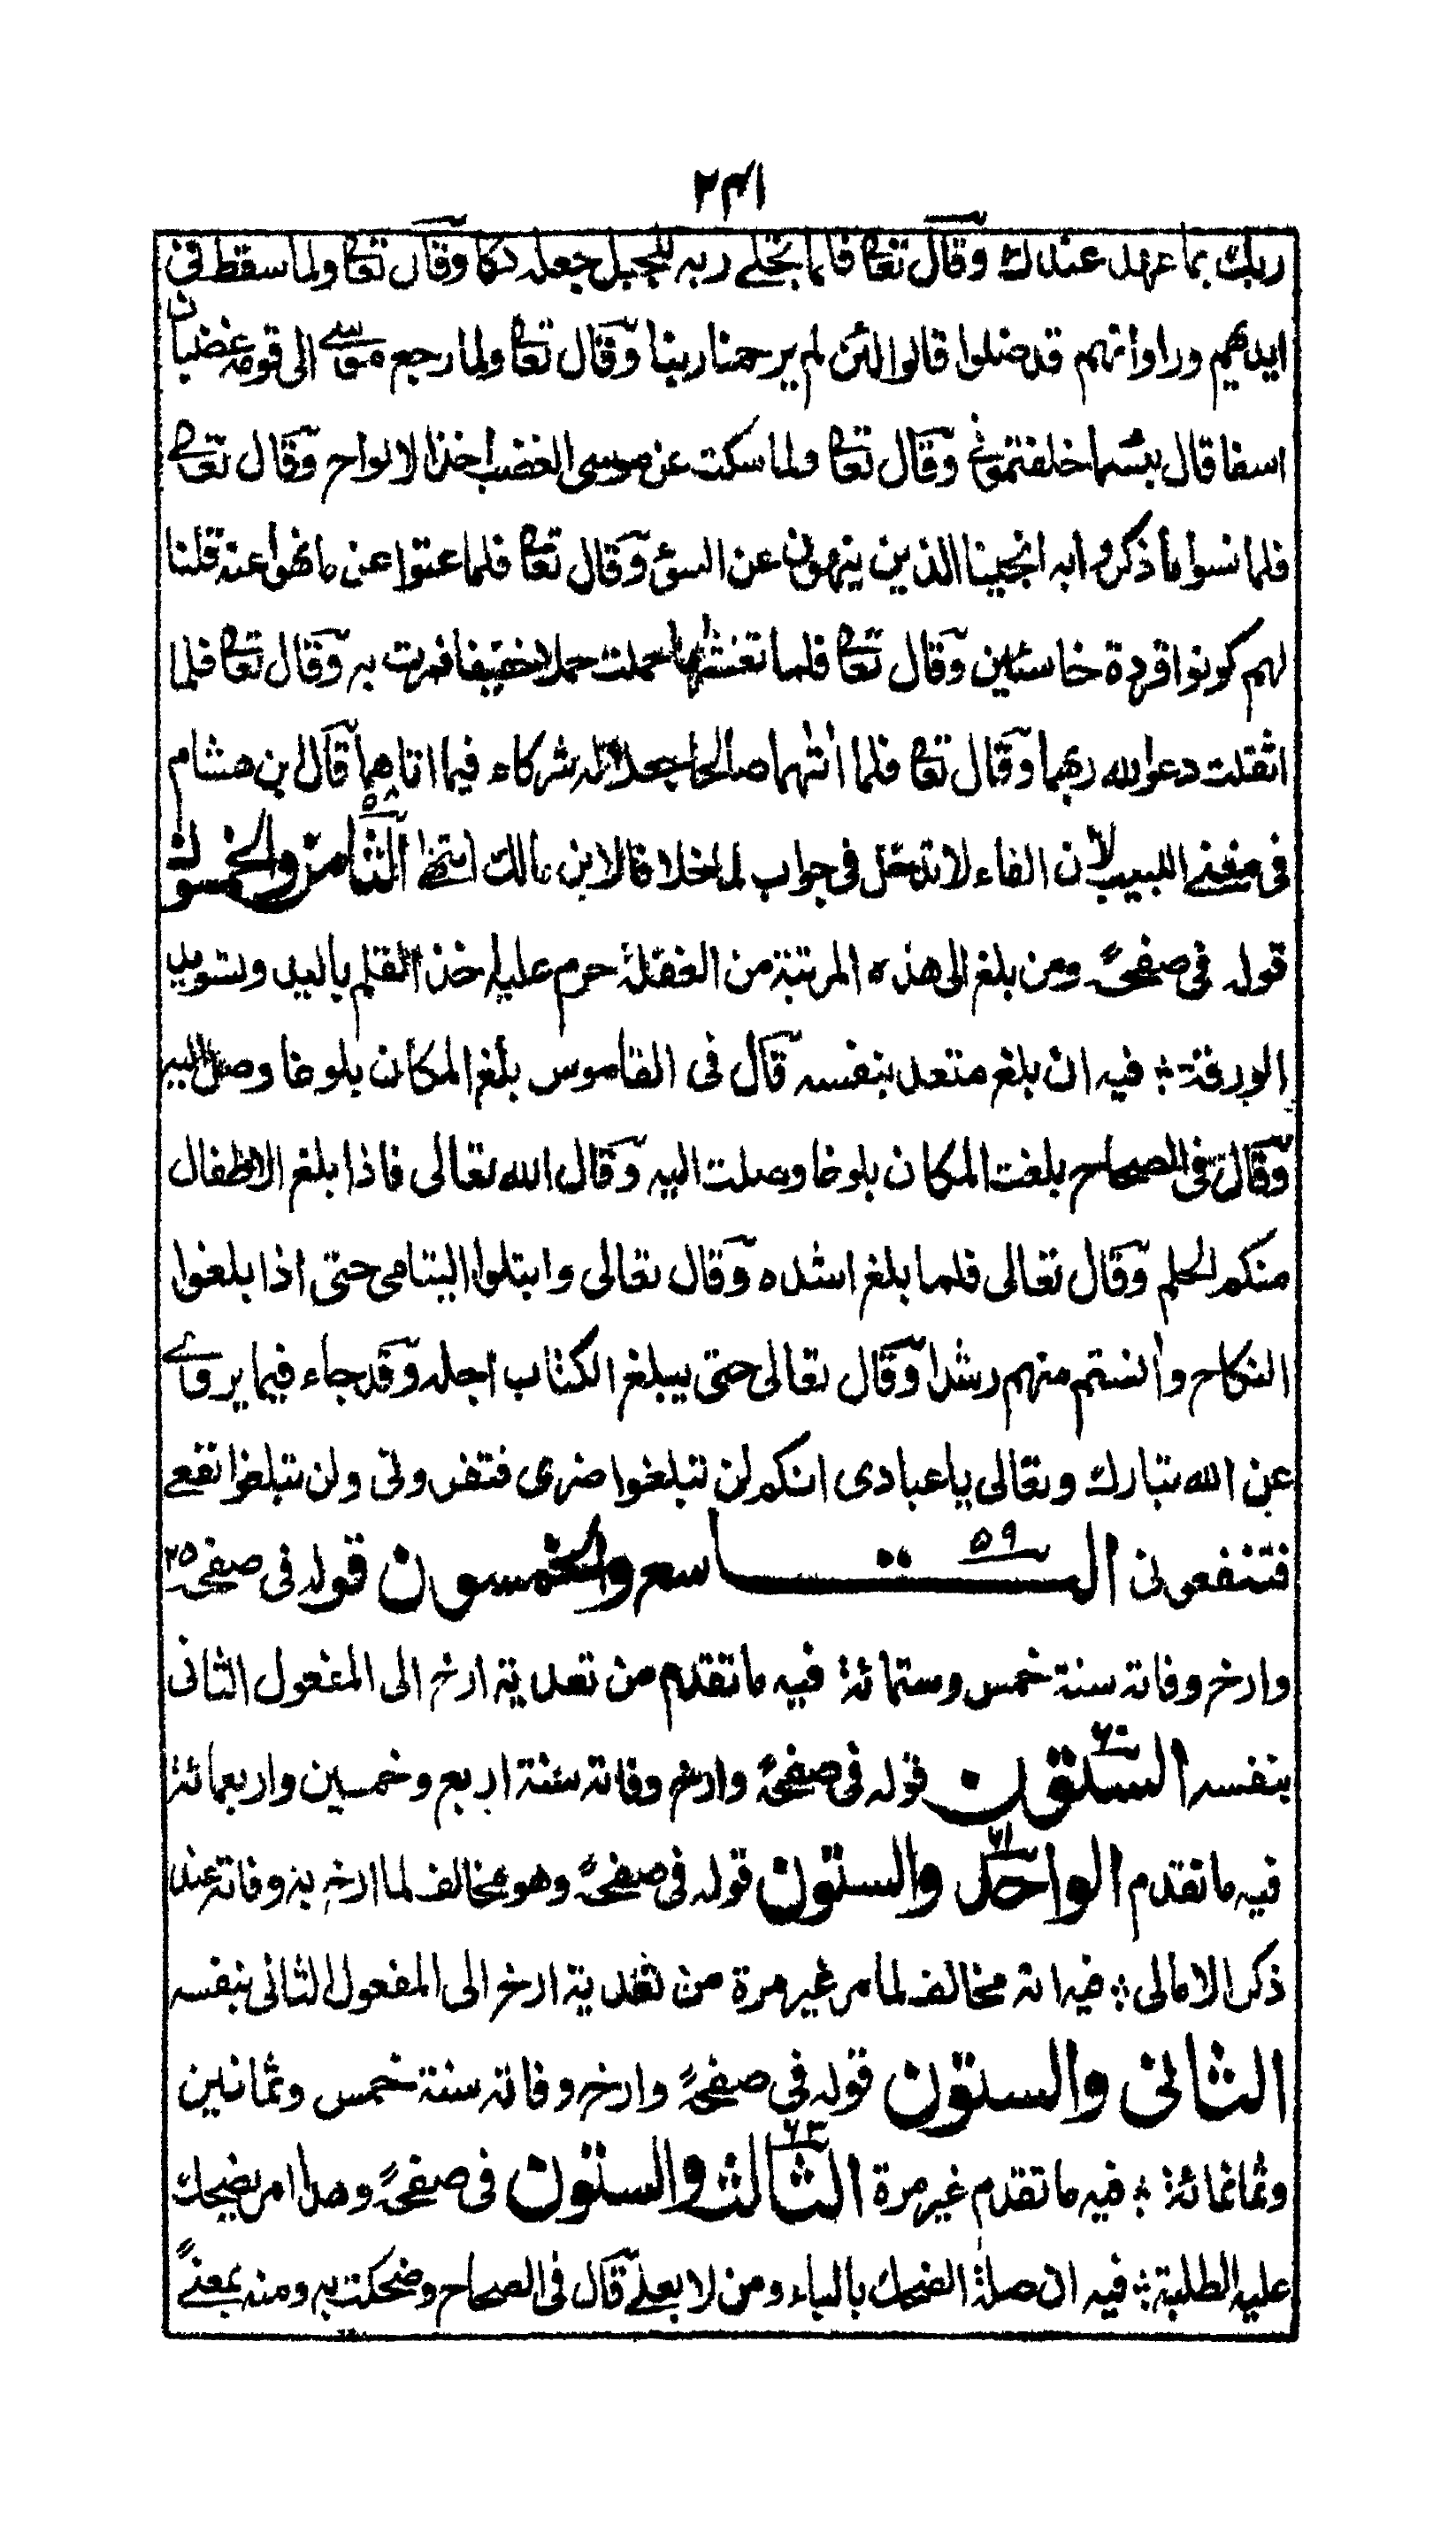 ٢٤١
ربك بما عهد عندك وقال تعا فلما تجلے ربه للجبل جعله دكا وقال تعا ولما سقط فى
ايديهم وراوا انهم قد ضلوا قالوا لئن لم يرحمنا ربنا وقال تعا ولما رجع موسے الى قومه غضبان
اسفا قال بئسما خلفتمونے وقال تعا ولما سكت عن موسى الغضب اخذ الالواح وقال تعالے
فلما نسوا ما ذكروا به انجينا الذين ينهون عن السوء وقال تعا فلما عتوا عن ما نهوا عنه قلنا
لهم كونوا قردة خاسئين وقال تعا فلما تغشها حملت حملا خفيفا فمرت به وقال تعا فلما
اثقلت دعوا الله ربهما وقال تعا فلما اتهما صالحا جعلا له شركاء فيما اتاهما قال ابن هشام
فى مغنے اللبيب لان الفاء لا تدخل فى جواب لما خلافا لابن مالك انتهے الثامن والخمسون ٥٨
قوله فى صفحة ومن بلغ الى هذه المرتبة من الغفلة حرم عليه اخذ القلم باليد وتسويد
الورقة ؞ فيه ان بلغ متعد بنفسه قال فى القاموس بلغ المكان بلوغا وصل اليه
وقال فى الصحاح بلغت المكان بلوغا وصلت اليه وقال الله تعالى فاذا بلغ الاطفال
منكم الحلم وقال تعالى فلما بلغ اشده وقال تعالى وابتلوا اليتامى حتى اذا بلغوا
النكاح وآنستم منهم رشدا وقال تعالى حتى يبلغ الكتاب اجله وقد جاء فيما يروے
عن الله تبارك وتعالى يا عبادى انكم لن تبلغوا ضرى فتضرونى ولن تبلغوا نفعے
فتنفعونى التاسع والخمسون ٥٩ قوله فى صفحة ٢٥
وارخ وفاته سنة خمس وستمائة فيه ما تقدم من تعدية ارخ الى المفعول الثانى
بنفسه الستون ٦٠ قوله فى صفحة وارخ وفاته سنة اربع وخمسين واربعمائة
فيه ما تقدم الواحد والستون ٦١ قوله فى صفحة وهو مخالف لما ارخ به وفاته عند
ذكر الامالى ؞ فيه انه مخالف لما مر غير مرة من تعدية ارخ الى المفعول الثانى بنفسه
الثانى والستون قوله فى صفحة وارخ وفاته سنة خمس وثمانين
وثمانمائة ؞ فيه ما تقدم غير مرة الثالث والستون ٦٣ فى صفحة وهذا امر يضحك
عليه الطلبة ؞ فيه ان صلة الضحك بالباء ومن لا بعلے قال فى الصحاح وضحكت به ومنه بمعنے